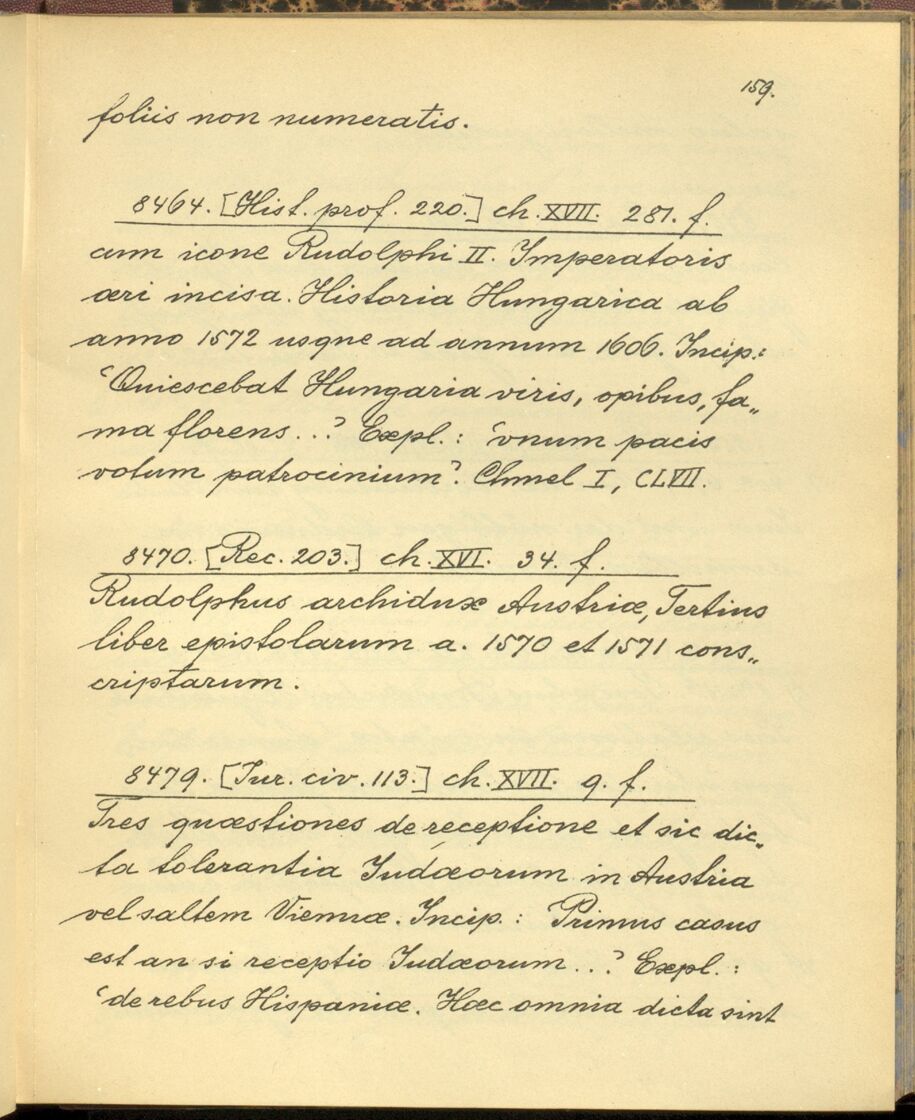 159.
foliis non numeratis.
8464. [Hist. prof. 220.] ch. XVII. 281. f.
cum icone Rudolphi II. Imperatoris
æri incisa. Historia Hungarica ab
anno 1572 usque ad annum 1606. Incip.:
‘Quiescebat Hungaria viris, opibus, fa„
ma florens...’ Expl.: ‘vnum pacis
votum patrocinium’. Chmel I, CLVII.
8470. [Rec. 203.] ch. XVI. 34. f.
Rudolphus archidux Austriæ, Tertius
liber epistolarum a. 1570 et 1571 cons„
criptarum.
8479. [Iur. civ. 113.] ch. XVII. 9. f.
Tres quæstiones de receptione et sic dic„
ta tolerantia Iudæorum in Austria
vel saltem Viennæ. Incip.: Primus casus
est an si receptio Iudæorum...’ Expl.:
‘de rebus Hispaniæ. Hæc omnia dicta sint